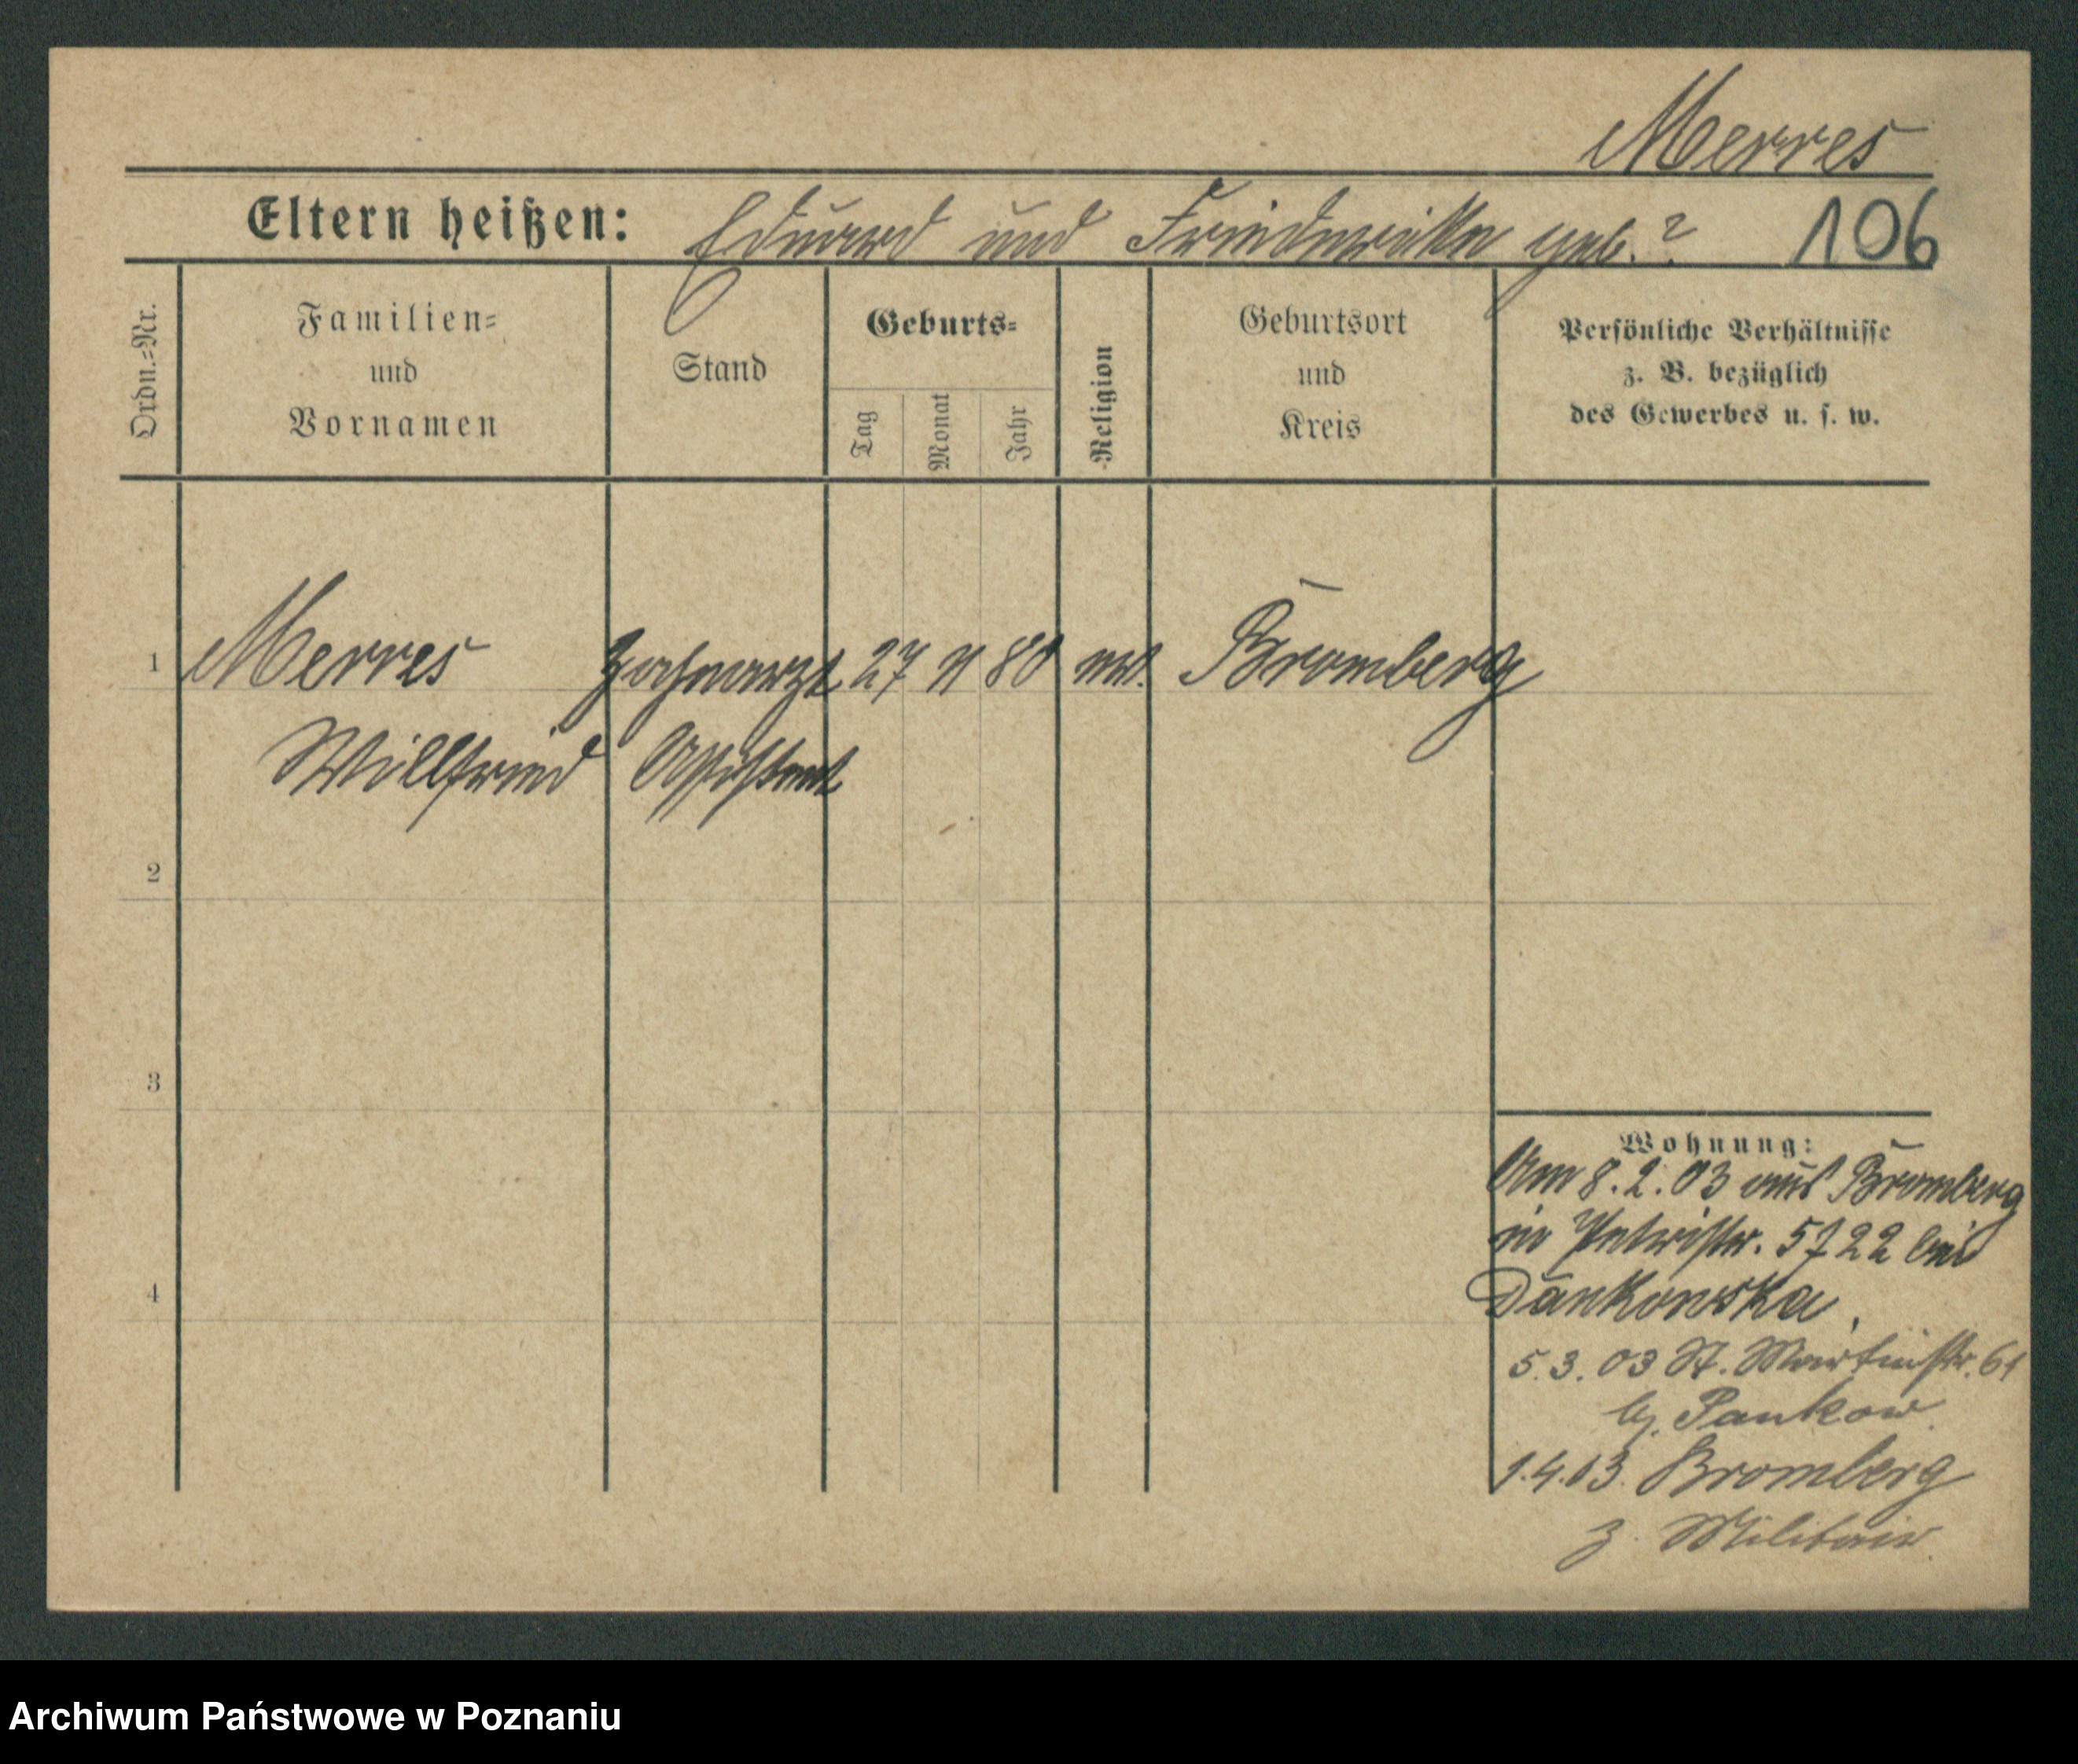 Merres
Eltern heißen: Eduard und Friederike geb. ? 106
Ordn.=Nr.
Familien=
und
Vornamen
Stand
Geburts=
Tag
Monat
Jahr
Religion
Geburtsort
und
Kreis
Persönliche Verhältnisse
z. B. bezüglich
des Gewerbes u. s. w.
1 Merres Zahnarzt 27 11 80 Bromberg
Willfried Assistent
2
3
4
Wohnung:
Am 8.2.03 aus Bromberg
in Petristr. 5 22 bei
Dankowska,
5.3.03 St. Martinstr. 61
b. Pankow
1.4.03. Bromberg
z. Militair.
Archiwum Państwowe w Poznaniu